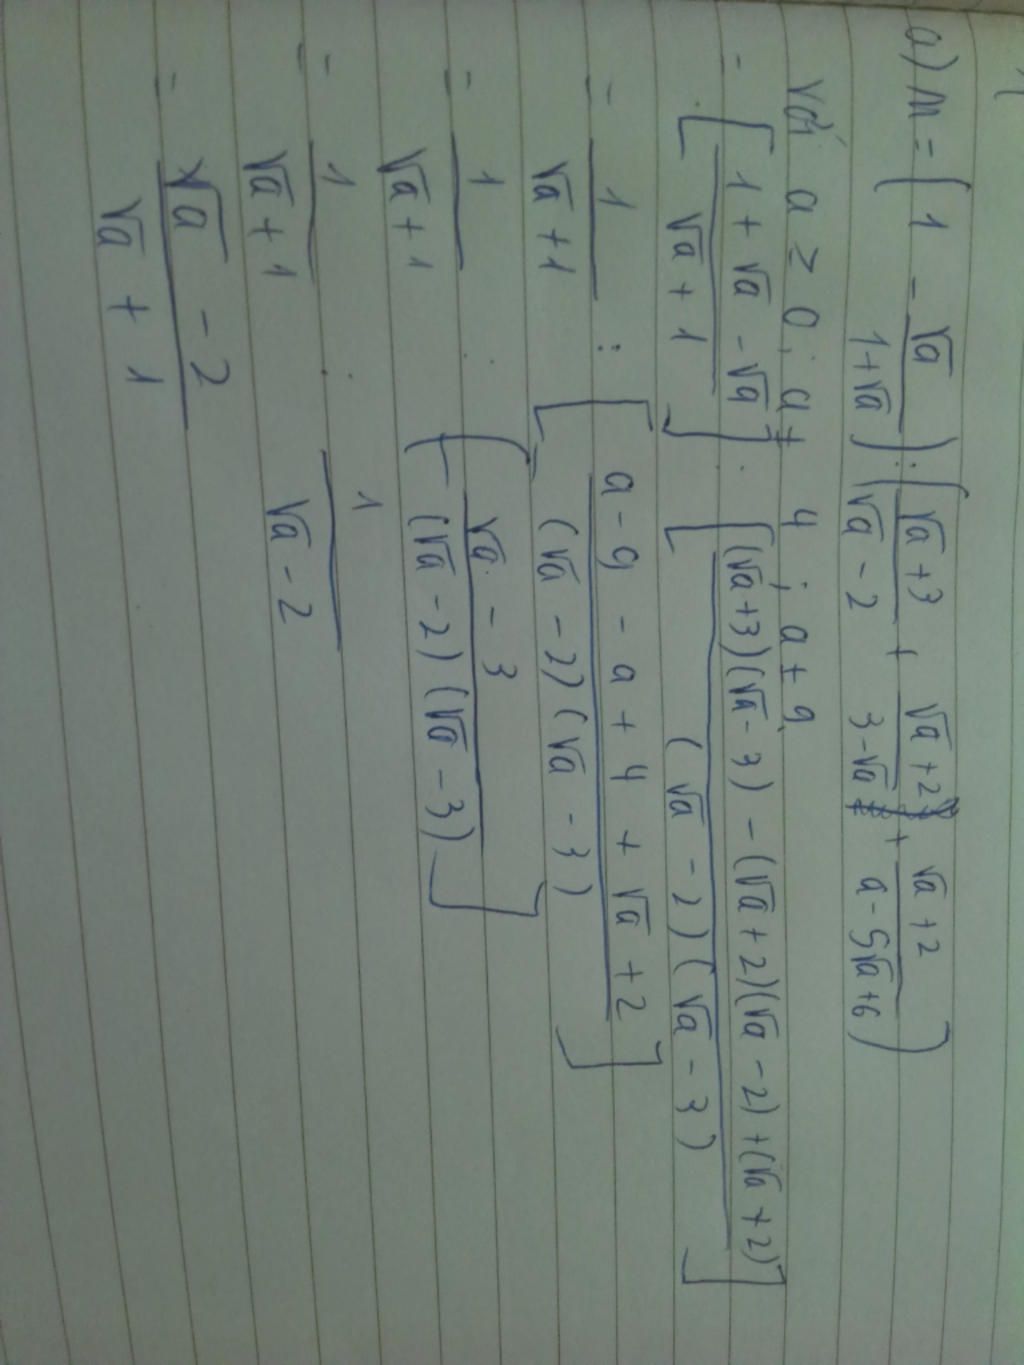 a) M = ( 1 - √a / 1+√a ) : ( √a+3 / √a-2 + √a+2 / 3-√a + √a+2 / a-5√a+6 )
Với a ≥ 0 ; a ≠ 4 ; a ≠ 9
= [ 1+√a-√a / √a+1 ] : [ (√a+3)(√a-3) - (√a+2)(√a-2) + (√a+2) / (√a-2)(√a-3) ]
= 1 / √a+1 : [ a-9-a+4+√a+2 / (√a-2)(√a-3) ]
= 1 / √a+1 : [ √a-3 / (√a-2)(√a-3) ]
= 1 / √a+1 : 1 / √a-2
= √a-2 / √a+1